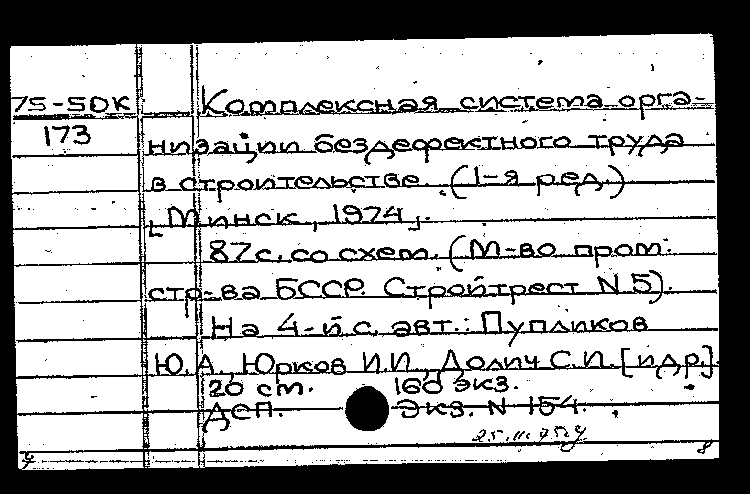 75-5DK Комплексная система орга-
173
низации бездефектного труда
в строительстве. (1-я ред.)
[Минск, 1974].
87с. со схем. (М-во пром.
стр-ва БССР. Стройтрест N 5).
На 4-й с. авт.: Пупликов
Ю.А., Юрков И.И., Долич С.И. [и др.].
20 см. 160 экз.
ДСП. Экз. N 154.
8